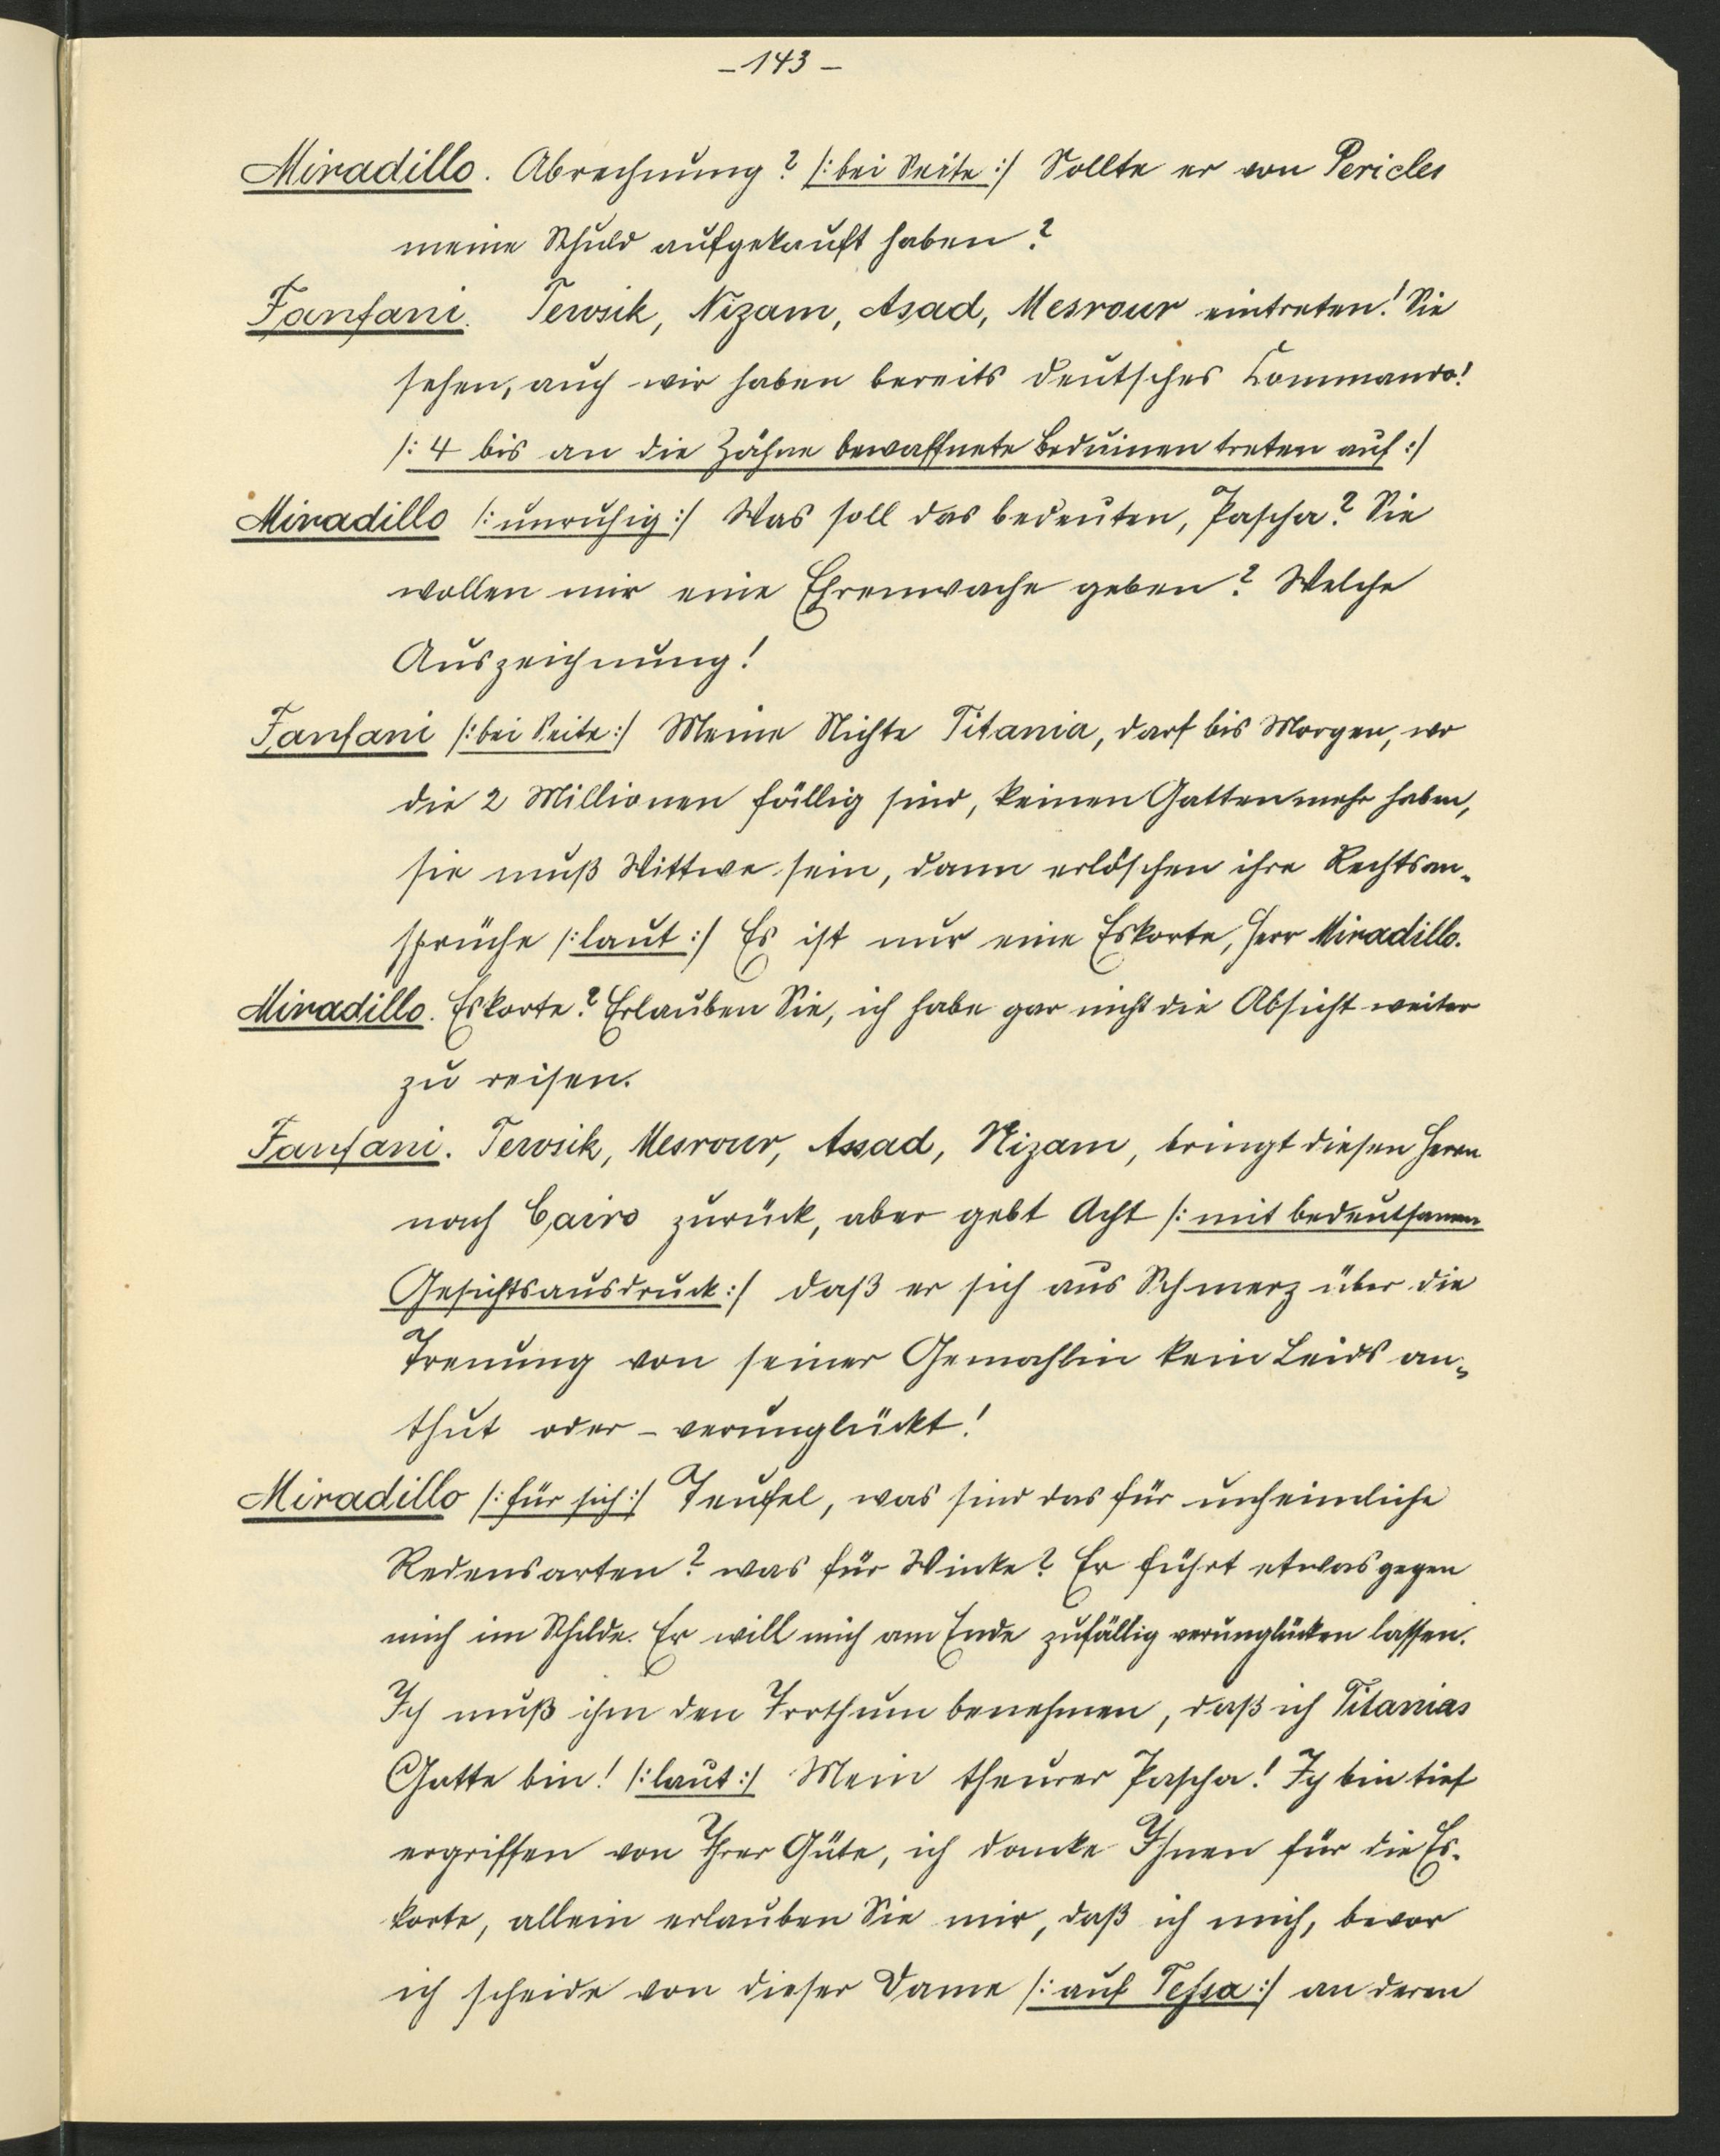 – 143 –
Miradillo. Abrechnung? /: bei Seite :/ Sollte er von Pericles
meine Schuld aufgekauft haben?
Fanfani. Tewsik, Nizam, Asad, Mesrour eintreten! Sie
sehen, auch wir haben bereits deutsches Commando!
/: 4 bis an die Zähne bewaffnete Beduinen treten auf :/
Miradillo /: unruhig :/ Was soll das bedeuten, Pascha? Sie
wollen mir eine Ehrenwache geben? Welche
Auszeichnung!
Fanfani /: bei Seite :/ Meine Nichte Titania, darf bis Morgen, wo
die 2 Millionen fällig sind, keinen Gatten mehr haben,
sie muß Wittwe sein, dann erlöschen ihre Rechtsan-
sprüche /: laut :/ Es ist nur eine Eskorte, Herr Miradillo.
Miradillo. Eskorte? Erlauben Sie, ich habe gar nicht die Absicht weiter
zu reisen.
Fanfani. Tewsik, Mesrour, Assad, Nizam, bringt diesen Herrn
nach Cairo zurück, aber gebt Acht /: mit bedeutsamen
Gesichtsausdruck :/ daß er sich aus Schmerz über die
Trenung von seiner Gemahlin kein Leids an-
thut oder – verunglückt!
Miradillo /: für sich :/ Teufel, was sind das für unheimliche
Redensarten? was für Winke? Er führt etwas gegen
mich im Schilde. Er will mich am Ende zufällig verunglücken lassen.
Ich muß ihm den Irrthum benehmen, daß ich Titanias
Gatte bin! /: laut :/ Mein theurer Pascha! Ich bin tief
ergriffen von Ihrer Güte, ich danke Ihnen für die Es-
korte, allein erlauben Sie mir, daß ich mich, bevor
ich scheide von dieser Dame /: auf Tessa :/ an deren